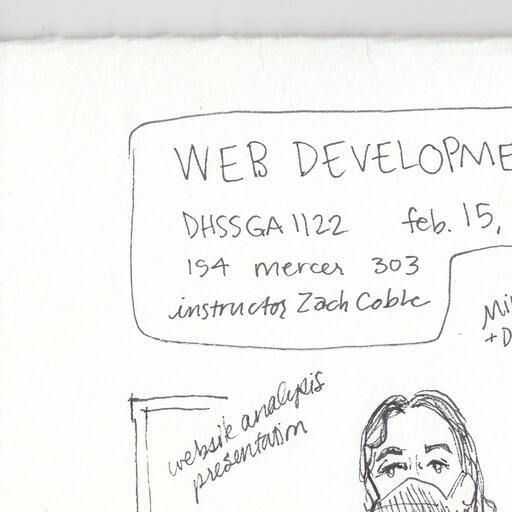 WEB DEVELOPME
DHSSGA 1122 feb. 15,
194 mercer 303
instructor Zach Coble
Mi
+ D
website analysis
presentation